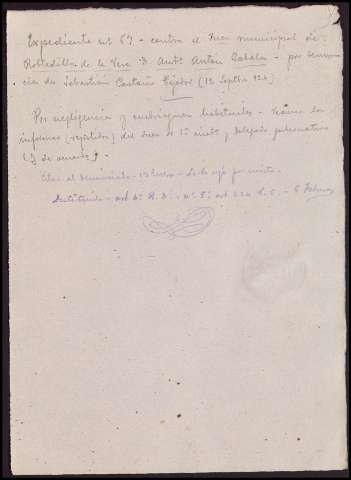 Expediente nº 67 - contra el Juez municipal de
Robledillo de la Vera D. Andrés Antón Zabala - por denun
cia de Sebastián Castaño (12 Septbre 924)
Por negligencia y embriaguez habituales -
informes (repetidos) del Juez de 1ª insta y delegado gubernativo
Cítese al denunciado - 13 Enero - Se le oye por escrito -
Destituido - art 4º R. D. - nº 5º art 224 L. O. - 6 Febrero